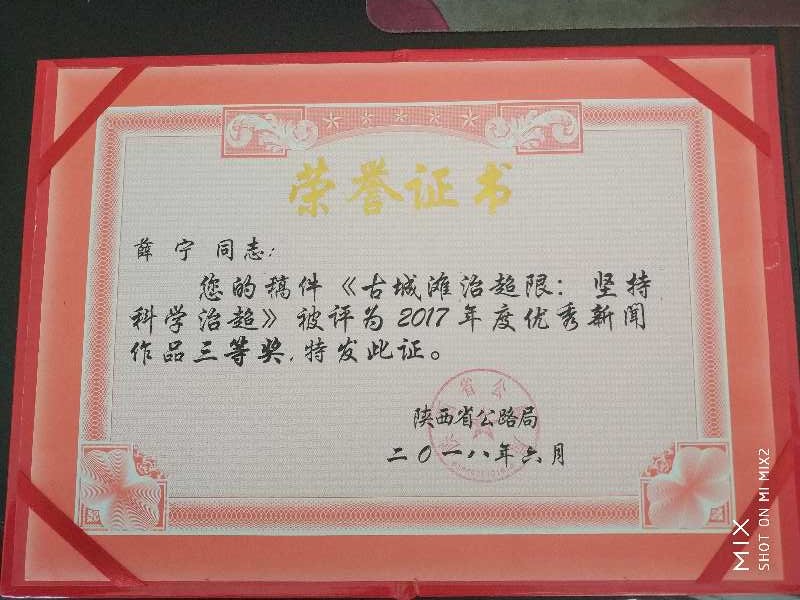 荣誉证书
薛宁同志：
您的稿件《古城滩治超限：坚持
科学治超》被评为2017年度优秀新闻
作品三等奖，特发此证。
陕西省公路局
二〇一八年六月
MIX
SHOT ON MI MIX2